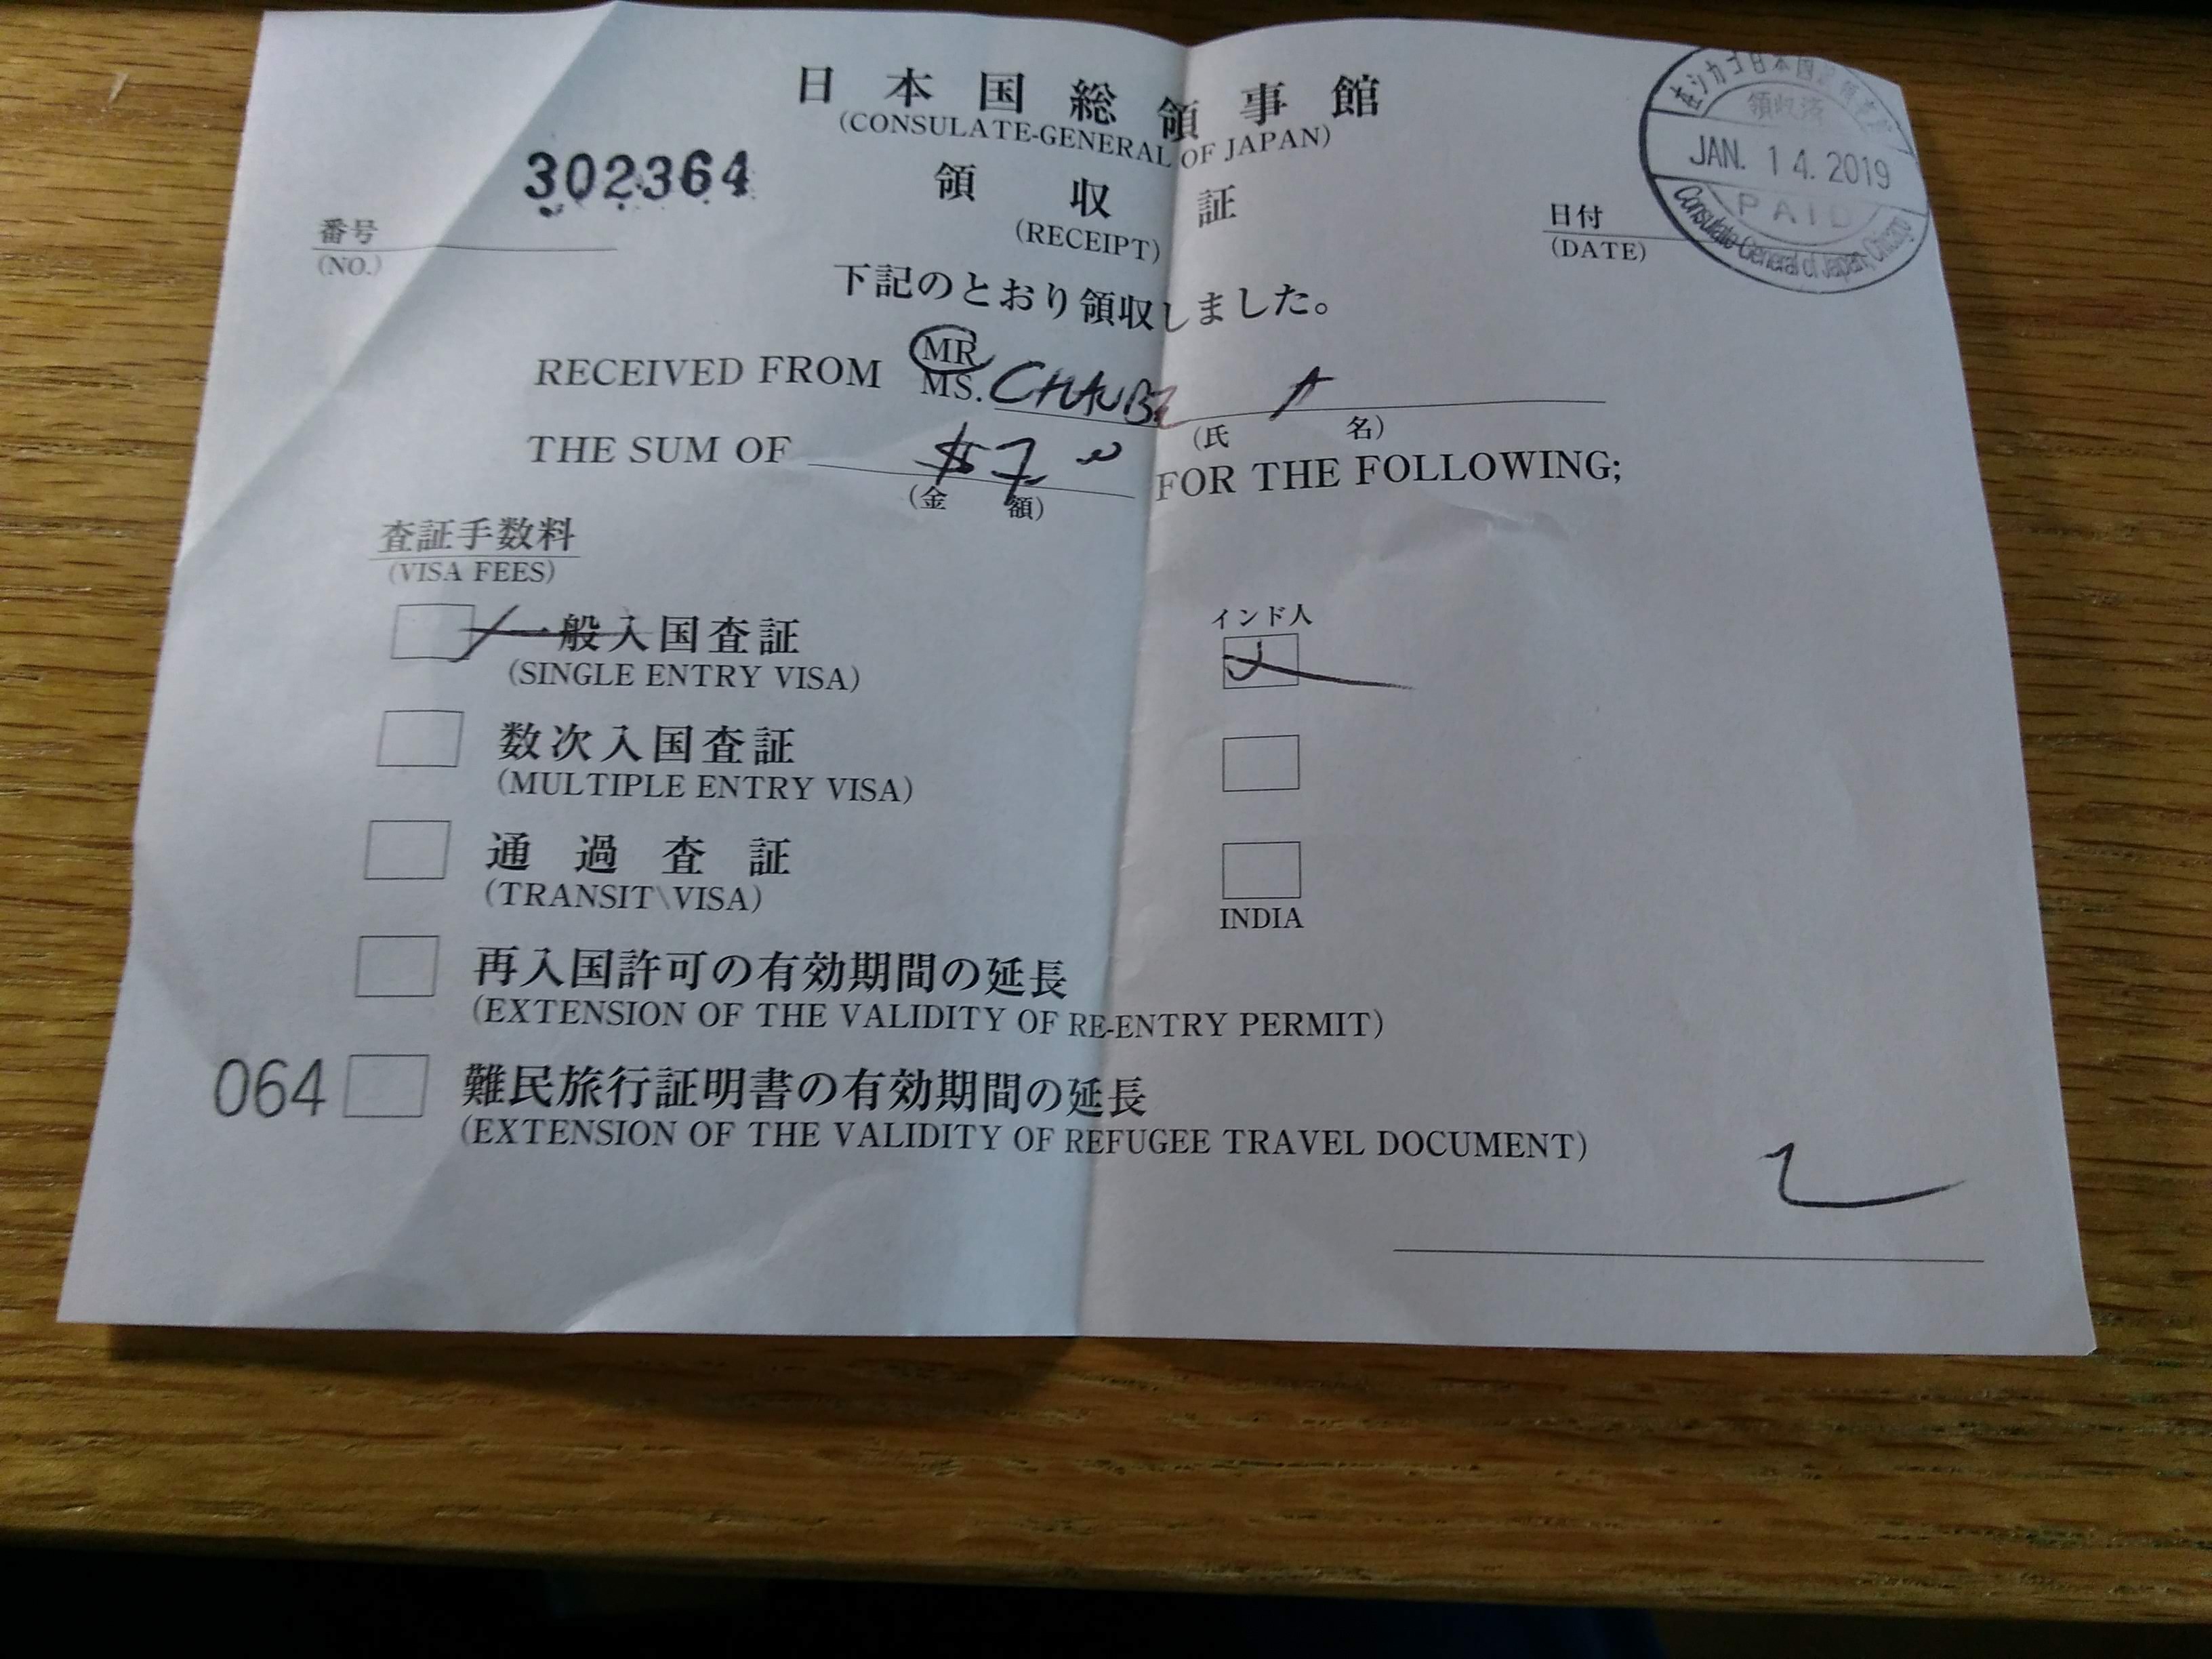 日本国総領事館
(CONSULATE-GENERAL OF JAPAN)
在シカゴ日本国総領事館
領収済
JAN. 14. 2019
PAID
Consulate General of Japan, Chicago
302364
領収証
(RECEIPT)
番号
(NO.)
日付
(DATE)
下記のとおり領収しました。
RECEIVED FROM MR
MS. CHAUBE A
(氏 名)
THE SUM OF $7.00 FOR THE FOLLOWING;
(金 額)
査証手数料
(VISA FEES)
インド人
一般入国査証
(SINGLE ENTRY VISA)
数次入国査証
(MULTIPLE ENTRY VISA)
通過査証
(TRANSIT\VISA)
INDIA
再入国許可の有効期間の延長
(EXTENSION OF THE VALIDITY OF RE-ENTRY PERMIT)
064 難民旅行証明書の有効期間の延長
(EXTENSION OF THE VALIDITY OF REFUGEE TRAVEL DOCUMENT)